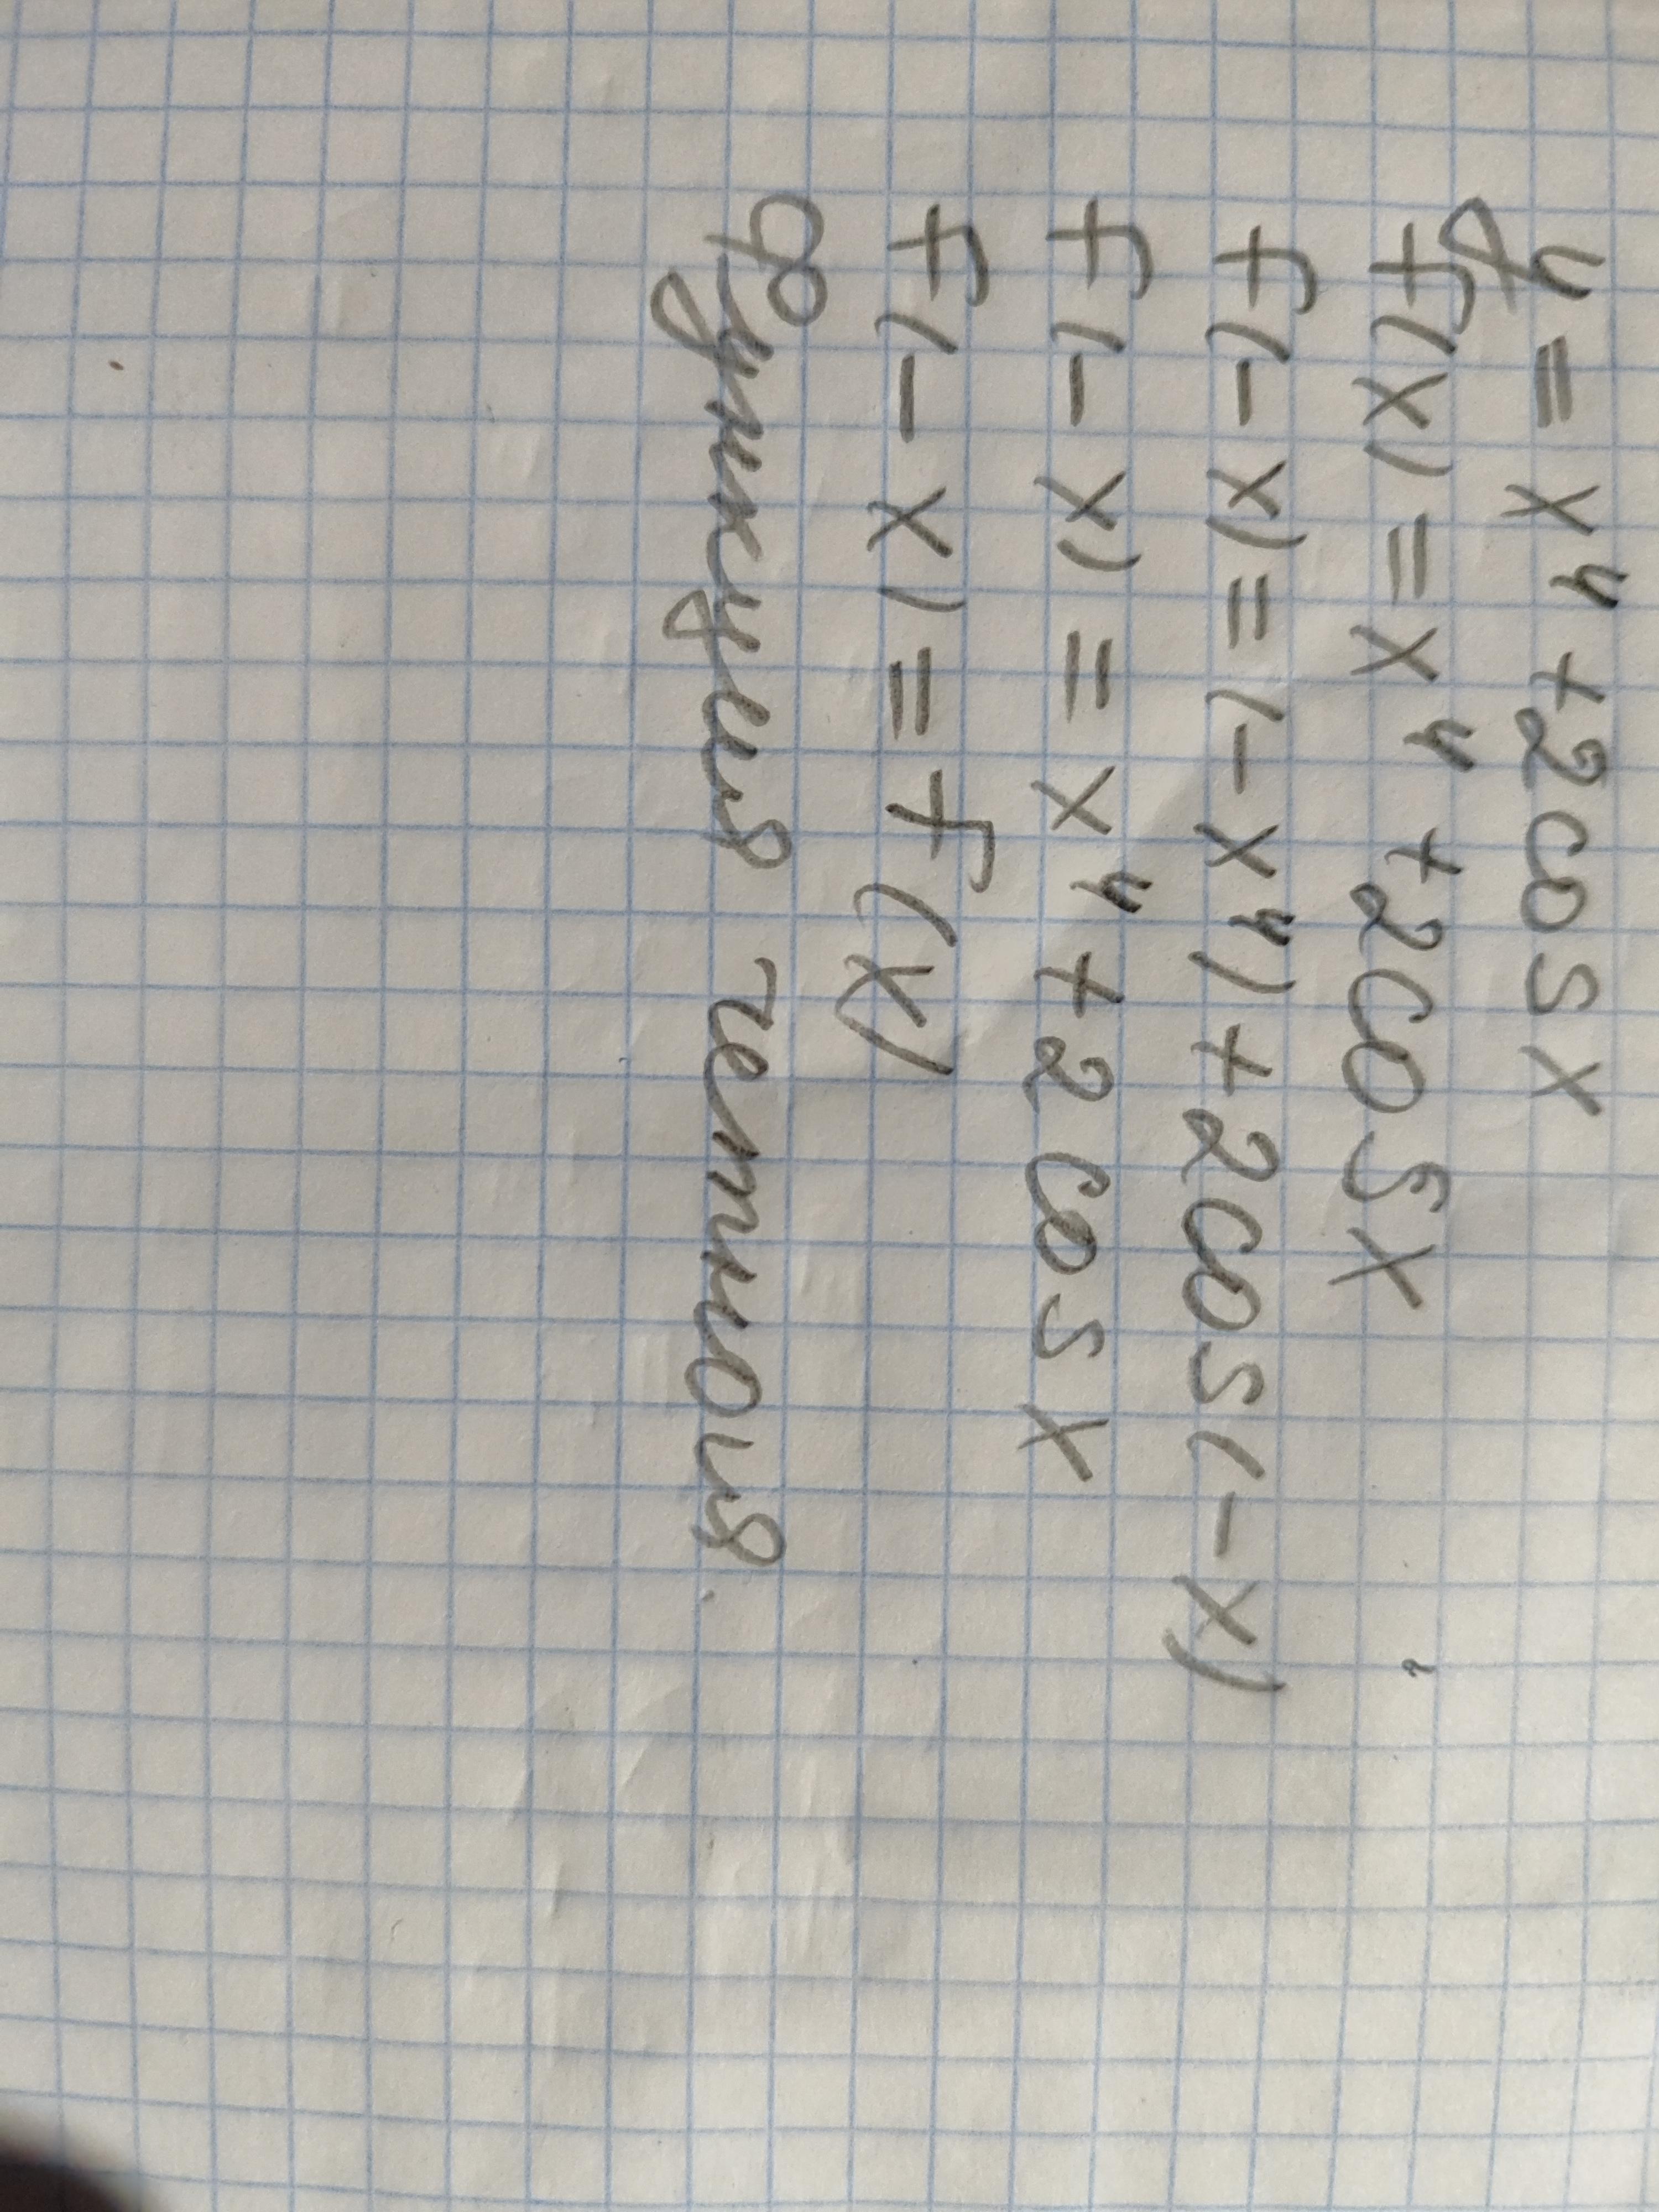 y = x⁴ + 2cos x
f(x) = x⁴ + 2cos x
f(-x) = (-x⁴) + 2cos(-x)
f(-x) = x⁴ + 2cos x
f(-x) = f(x)
функция четная.